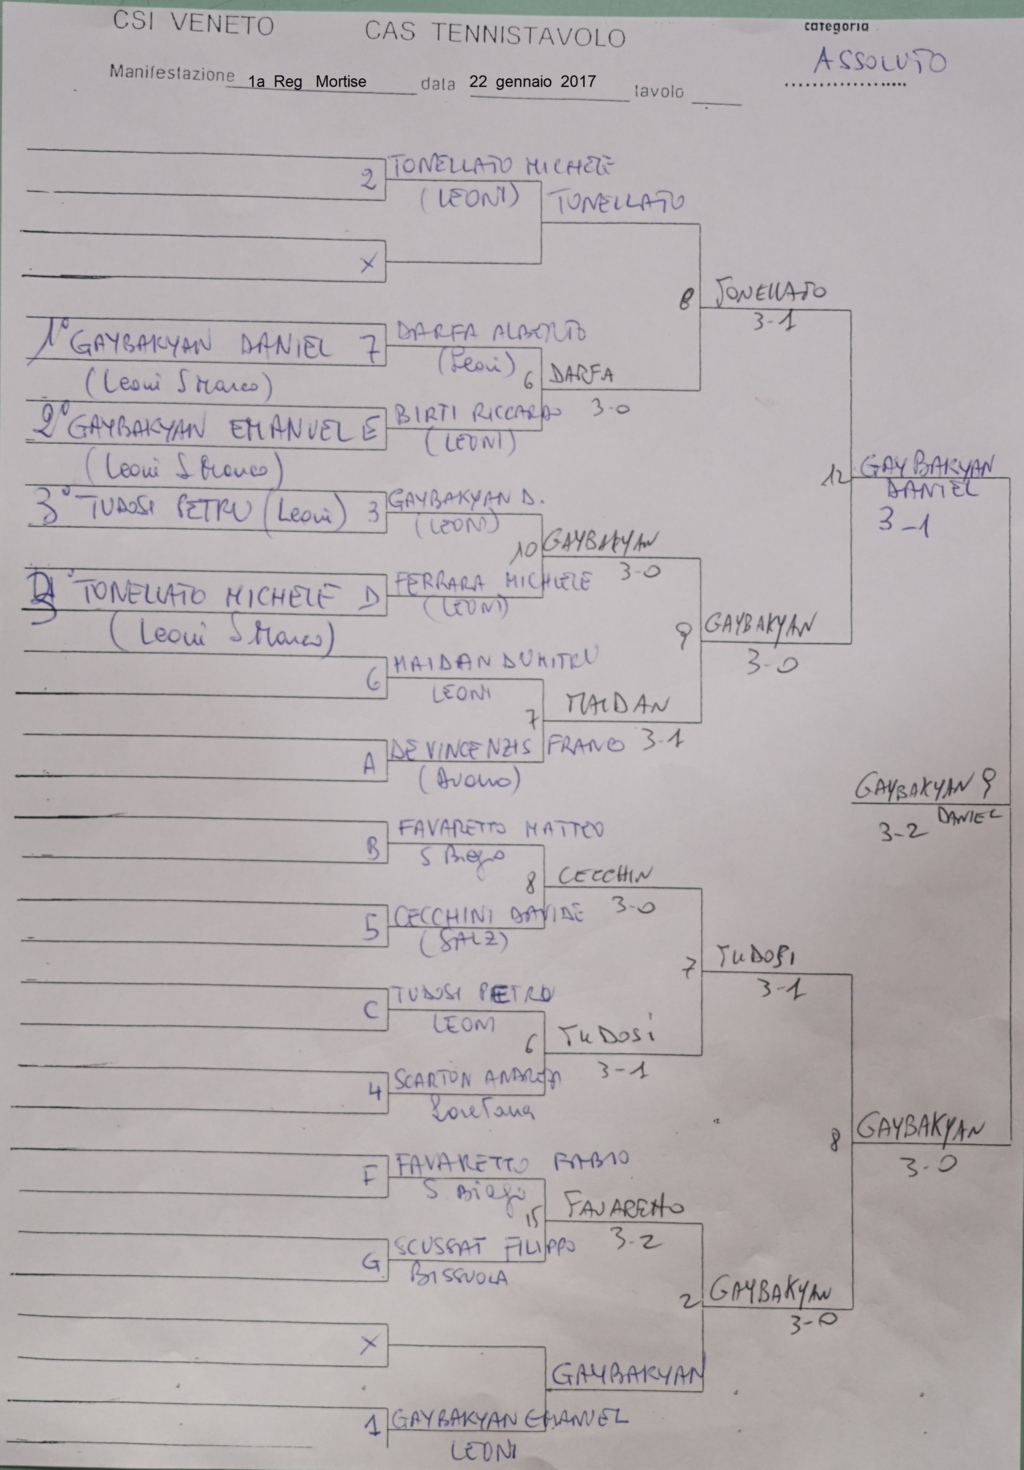 CSI VENETO CAS TENNISTAVOLO categoria
ASSOLUTO
Manifestazione 1a Reg Mortise data 22 gennaio 2017 tavolo
2 TONELLATO MICHELE
(LEONI) TONELLATO
X
8 TONELLATO
3-1
1° GAYBAKYAN DANIEL 7 DARFA ALBERTO
(Leoni S Marco) (Leoni) 6 DARFA
3-0
2° GAYBAKYAN EMANUELE BIRTI RICCARDO
(Leoni S Marco) (LEONI)
12 GAYBAKYAN
DANIEL
3-1
3° TUDOSI PETRU (Leoni) 3 GAYBAKYAN D.
(LEONI)
10 GAYBAKYAN
3-0
3° TONELLATO MICHELE D FERRARA MICHELE
(Leoni S Marco) (LEONI)
9 GAYBAKYAN
3-0
6 MAIDAN DUMITRU
LEONI
7 MAIDAN
3-1
A DE VINCENZIS FRANCO
GAYBAKYAN 9
DANIEL
3-2
B FAVARETTO MATTEO
S Biagio
8 CECCHIN
3-0
5 CECCHINI DAVIDE
(SALZ)
7 TUDOSI
3-1
C TUDOSI PETRU
LEONI
6 TUDOSI
3-1
4 SCARTON ANDREA
Loretana
8 GAYBAKYAN
3-0
F FAVARETTO FABIO
S. Biagio
15 FAVARETTO
3-2
G SCUSSAT FILIPPO
BISSUOLA
2 GAYBAKYAN
3-0
X
GAYBAKYAN
1 GAYBAKYAN EMANUEL
LEONI